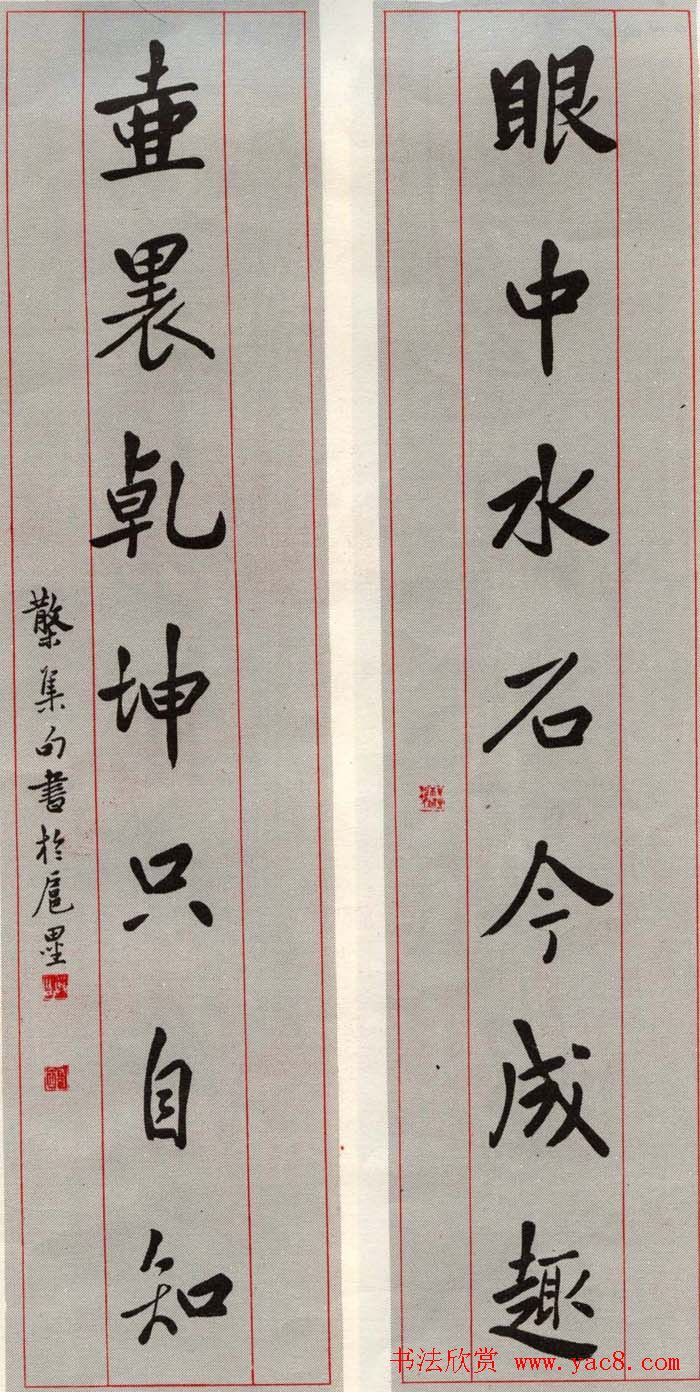 眼中水石今成趣
壶里乾坤只自知
集句書於扈壘
书法欣赏 www.yac8.com